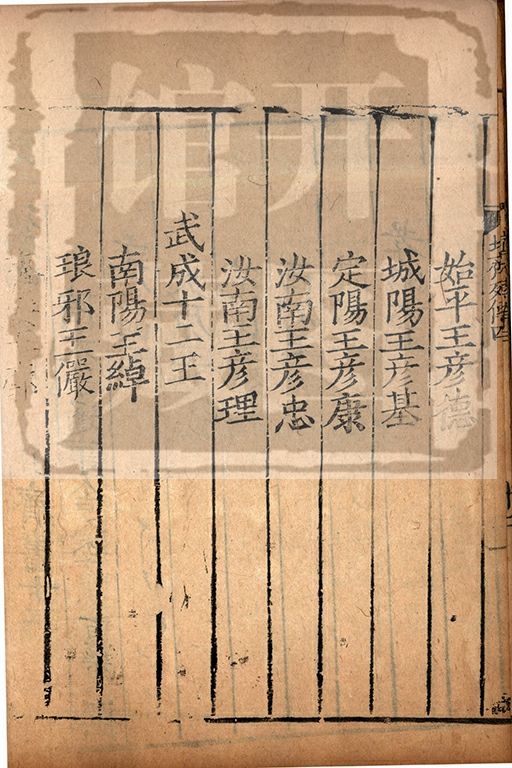 始平王彦德
城陽王彦基
定陽王彦康
汝南王彦忠
汝南王彦理
武成十二王
南陽王綽
琅邪王儼